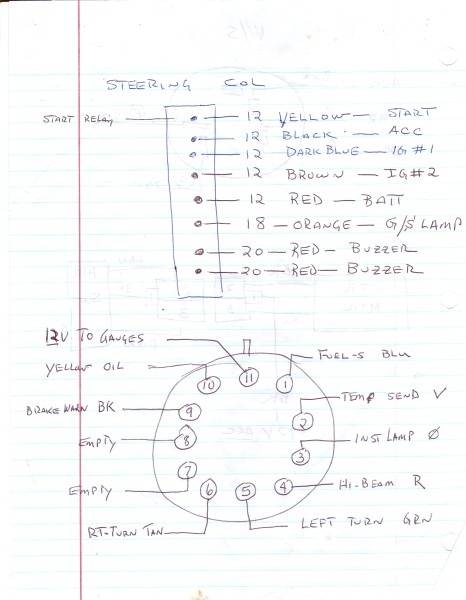 STEERING COL
START RELAY
12 YELLOW — START
12 BLACK - ACC
12 DARK BLUE — IG #1
12 BROWN — IG #2
12 RED — BATT
18 — ORANGE — G/S LAMP
20 — RED — BUZZER
20 — RED — BUZZER
12V TO GAUGES
FUEL-S BLU
YELLOW OIL
TEMP SEND V
BRAKE WARN BK
INST LAMP Ø
EMPTY
EMPTY
HI-BEAM R
RT-TURN TAN
LEFT TURN GRN
11
10
1
9
2
8
3
7
6
5
4